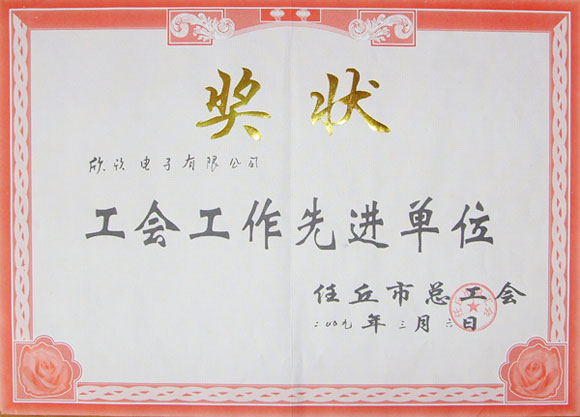 奖状
欣欣电子有限公司
工会工作先进单位
任丘市总工会
二00九年三月六日